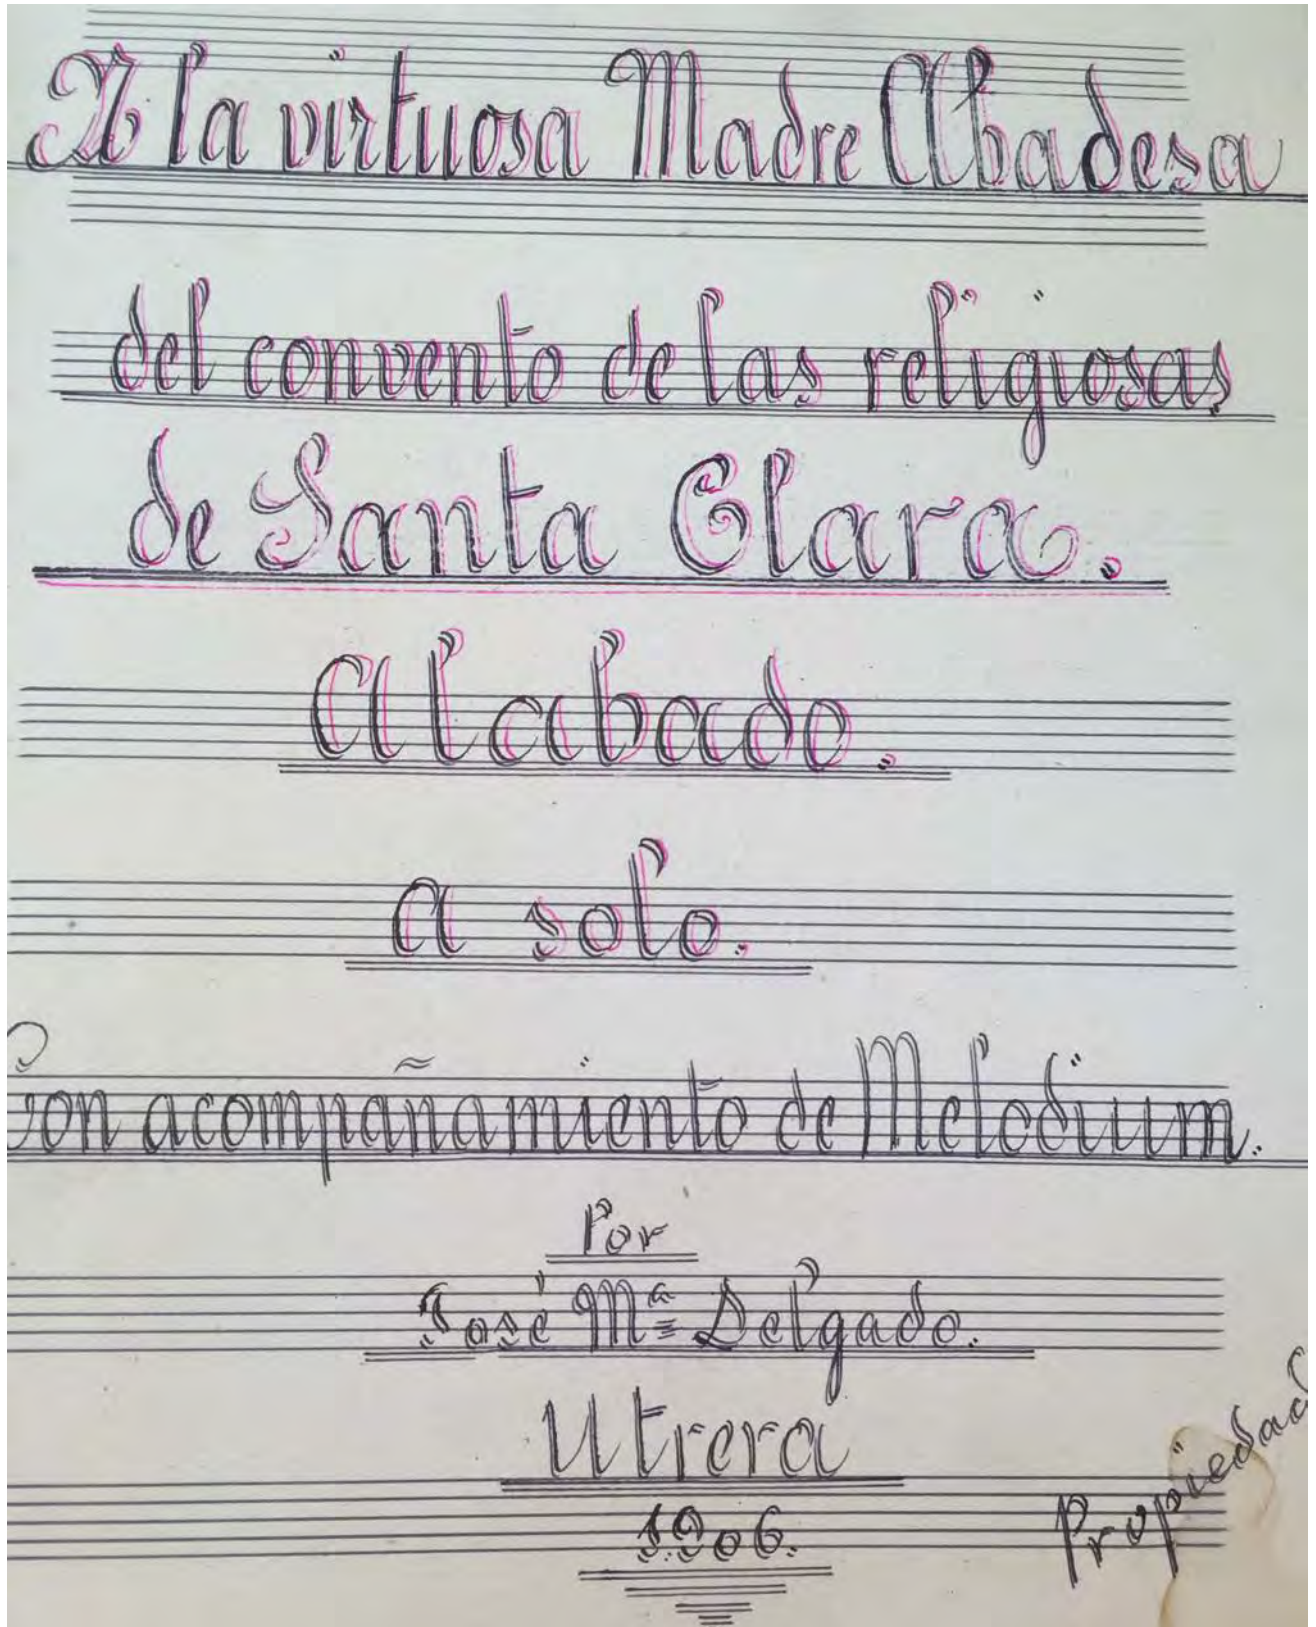 A la virtuosa Madre Abadesa
del convento de las religiosas
de Santa Clara.
Alabado.
A solo.
Con acompañamiento de Melodium.
Por
José Mª Delgado.
Utrera
1906.
Propiedad